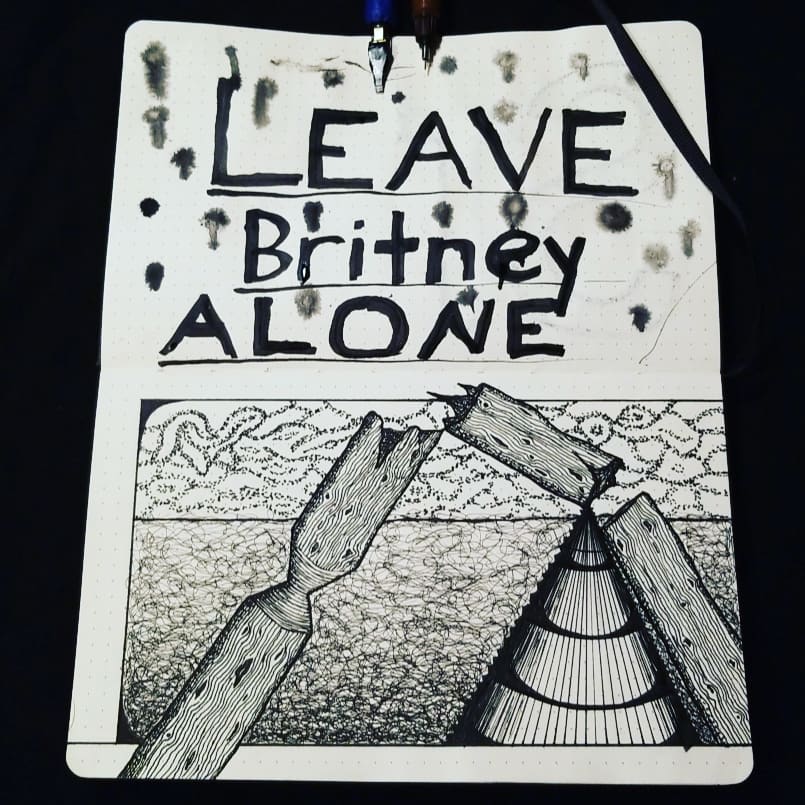 LEAVE
Britney
ALONE